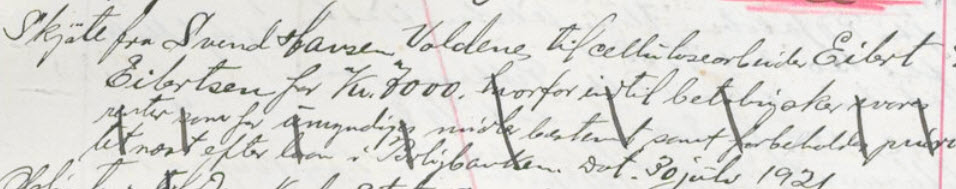 Skjøte fra Svend Hansen Valdene til celluloseorbeider Eilert
Eilertsen for Kr. 7000. hvorfor indtil betaling sker svares
renter som for umyndiges midler bestemt samt forbeholdes priori
tet næst efter laan i Boligbanken. Dat. 30 juli 1921